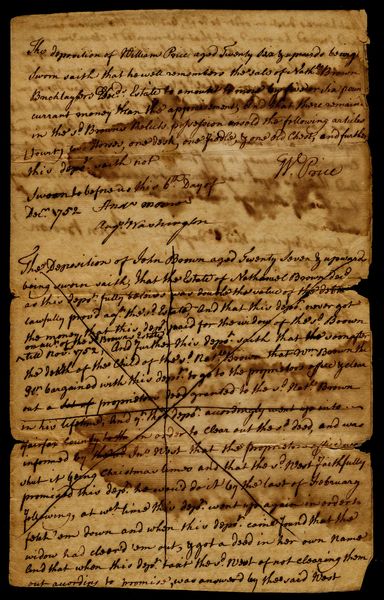 The deposition of William Price aged Twenty Six & upwards being
Sworn saith that he well remembers the sale of Nath.ll Brown
Bricklayers Decd. Estate to amount to more by
currant money than the appraisement, and that there remain
in the sd. Browns Relicts possession unsold the following articles
four Horses, one desk, one Saddle, & one old Chest, and further
this depot. saith not
Wm. Price
Sworn to before us this 6th Day of
Decr. 1752 Andw. monroe
Augt. Washington
The Deposition of John Brown aged Twenty Seven & upwards
being sworn saith, that the Estate of Nathaniel Brown Decd.
as this depot. fully beleives was double the value of the debts
lawfully proved agt. the sd. Estate And that this depot. never got
the money that this depot. paid for the widow of the sd. Brown
on acct. of the sd. Browns Estate
till Novr. 1752 And further this depot. saith that soon after
the death of the Child of the sd. Natl. Brown that Wm. Brown the
bargained with this depot. to go to the proprietors office & clear
out a deed granted to the sd. Natl. Brown
in his lifetime, and yt. this depot. accordingly went up unto
fairfax County in order to clear out the sd. deed, and was
informed by Jno. West that the proprietors office was
shut it being Christmas times and that the sd. West faithfully
promised this depot. he would do it by the last of February
following, at wch. time this depot. went up again in order to
fetch 'em down and when this depot. came found that the
widow had cleard 'em out, & got a deed in her own name
and that when this depot. taxt the sd. West of not clearing them
out acording to promise, was answered by the said West